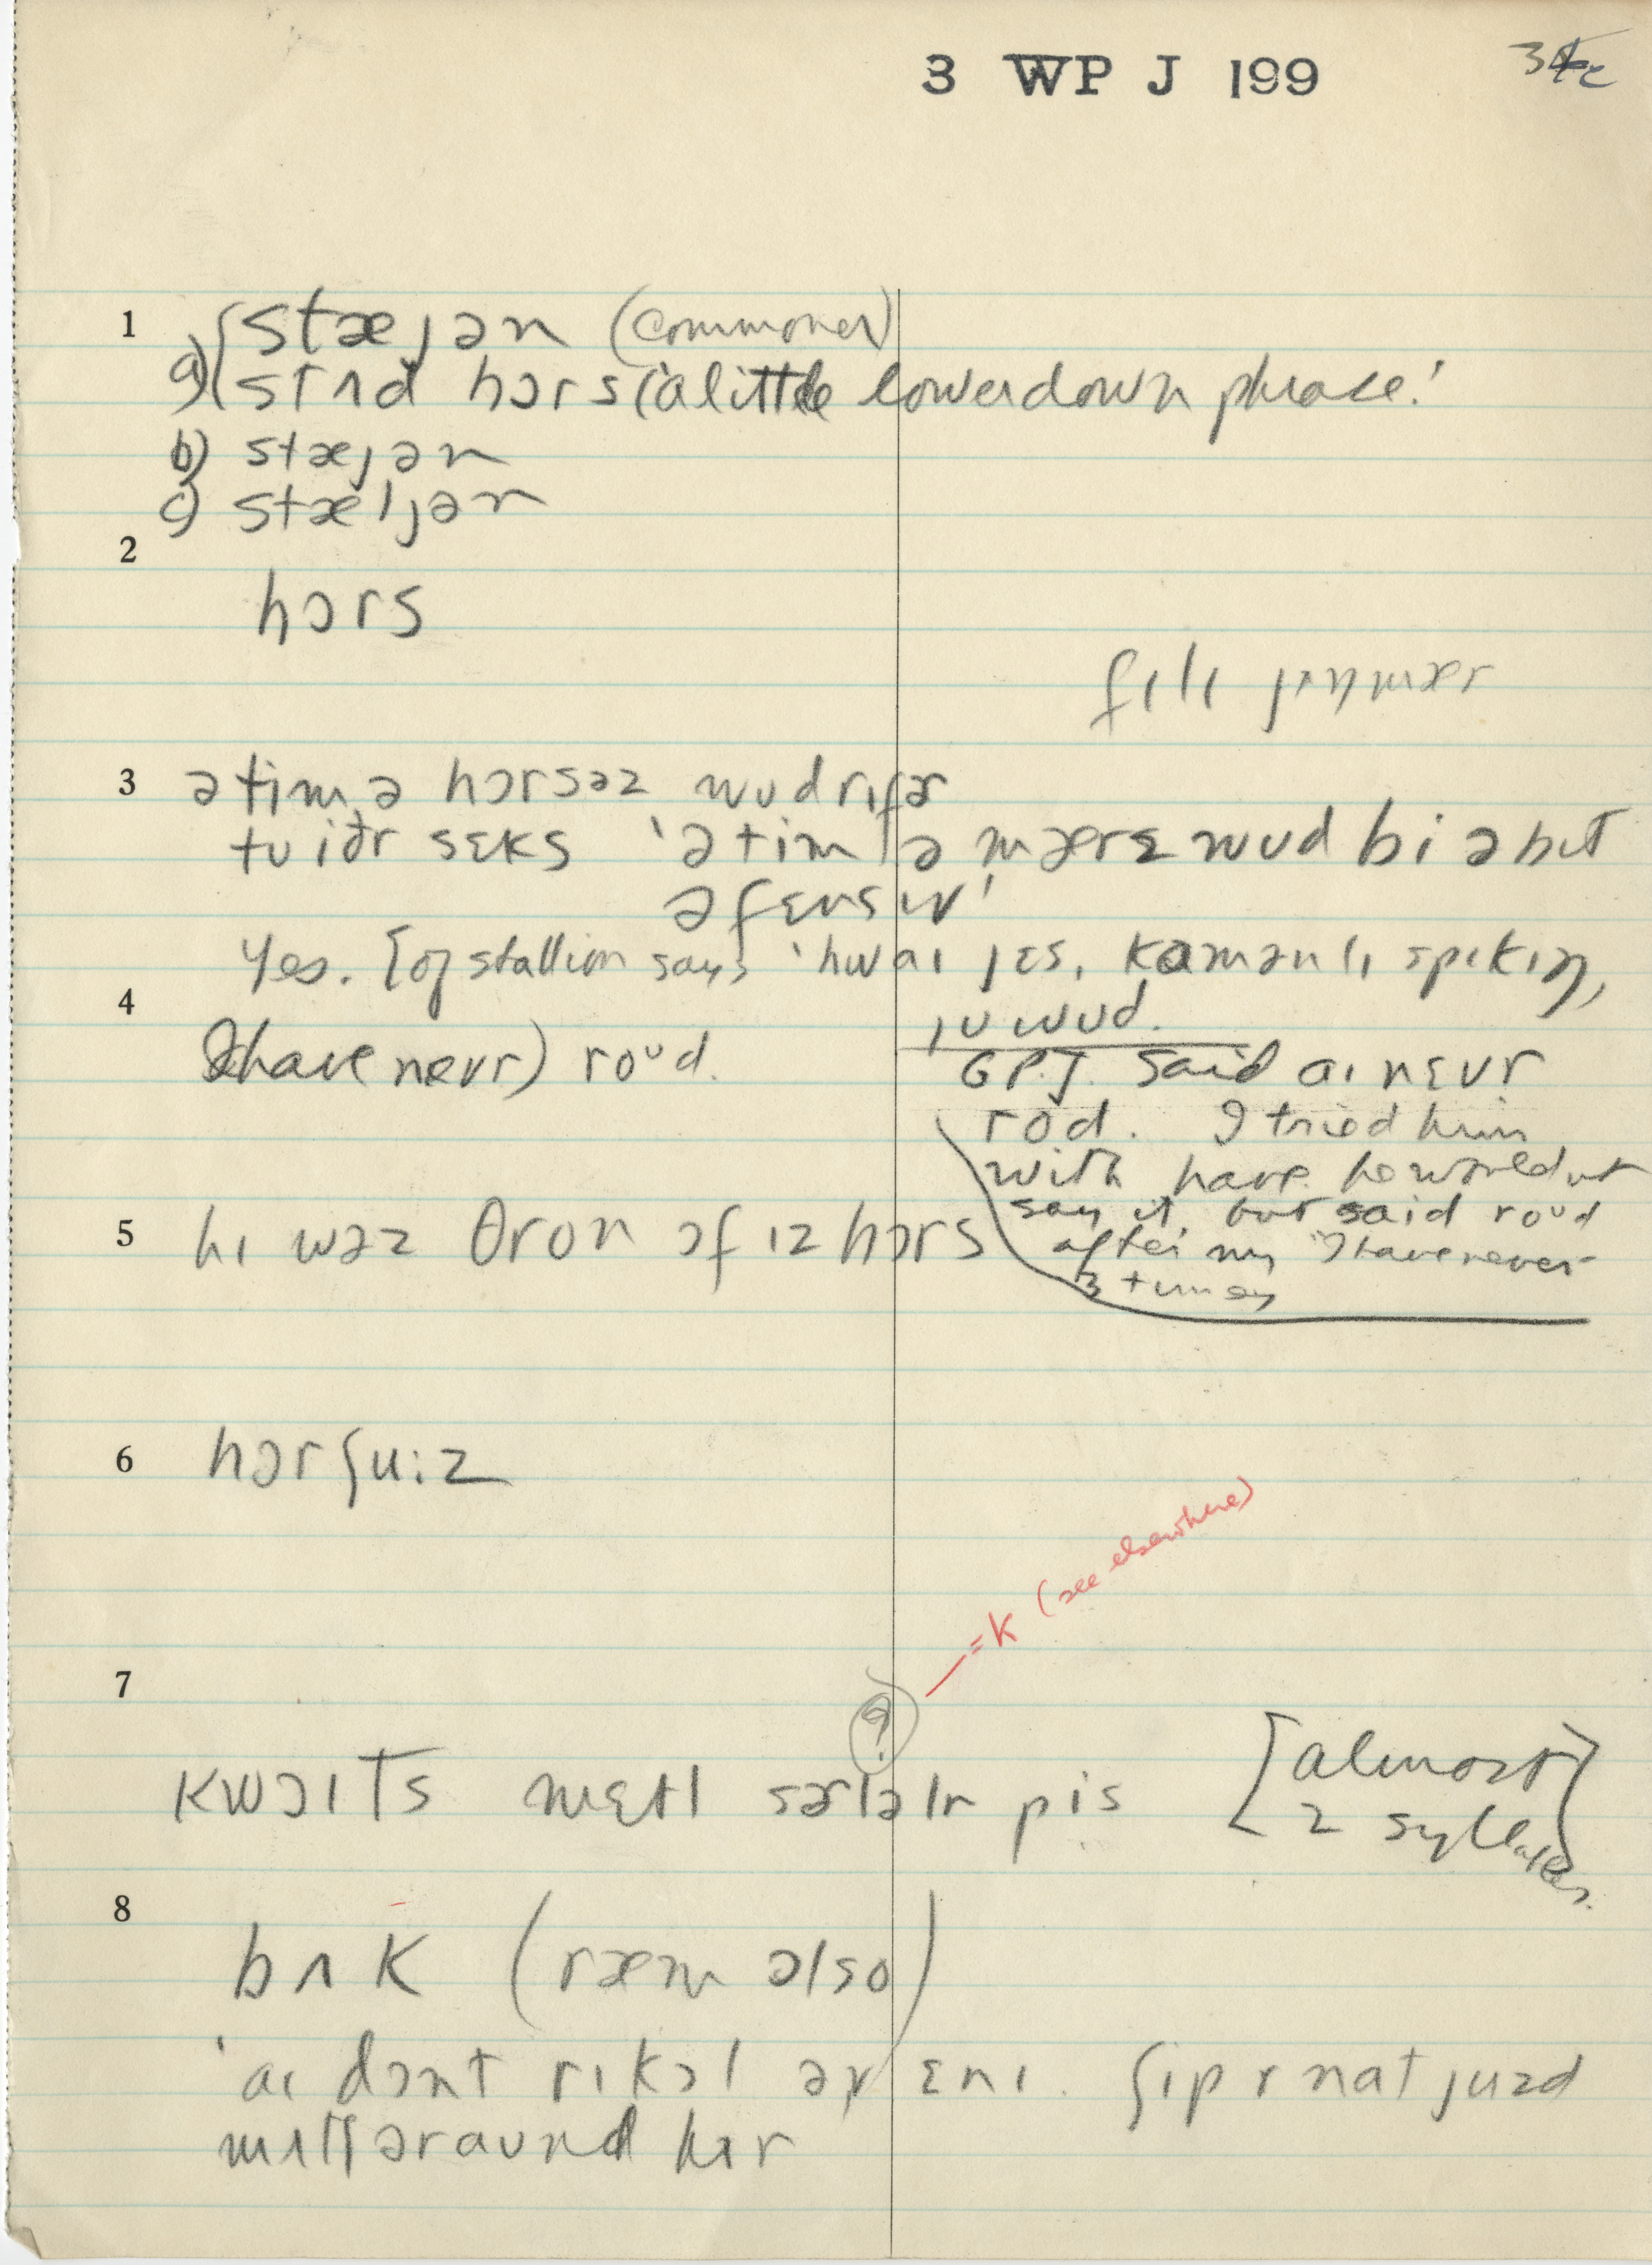 3 WP J 199
1
stæjən (commoner)
a) stʌd hɔrs ('a little lowerdown phrase!
b) stæjən
c) stæljən
2
hɔrs
fɪlɪ jɪŋmær
3 ətim ə hɔrsəz wʊd rɪfər
tʊ iðr sɛks 'ətim ə mærɛ wʊd bi əbʌt
əfɛnsɪv'
Yes. [of stallion says 'hwaɪ jɛs, kamənlɪ spikɪŋ,
jʊ wʊd.
4
(I have nevr) roᵘd.
GPJ said aɪ nɛvr
rod. I tried him
with have he would nt
say it, but said roᵘd
after my "I have never"
3 times
5 hɪ wəz θron ɔf ɪz hɔrs
6 hɔrʃu:z
=k (see elsewhere)
7
?
kwɔɪts mɛtl sərləlr pis [almost
2 syllables]
8
bʌk (ræm also)
'aɪ dɔnt rɪkɔl əv ɛnɪ. ʃip r nat juzd
mʌtʃ əraʊnd hɪr